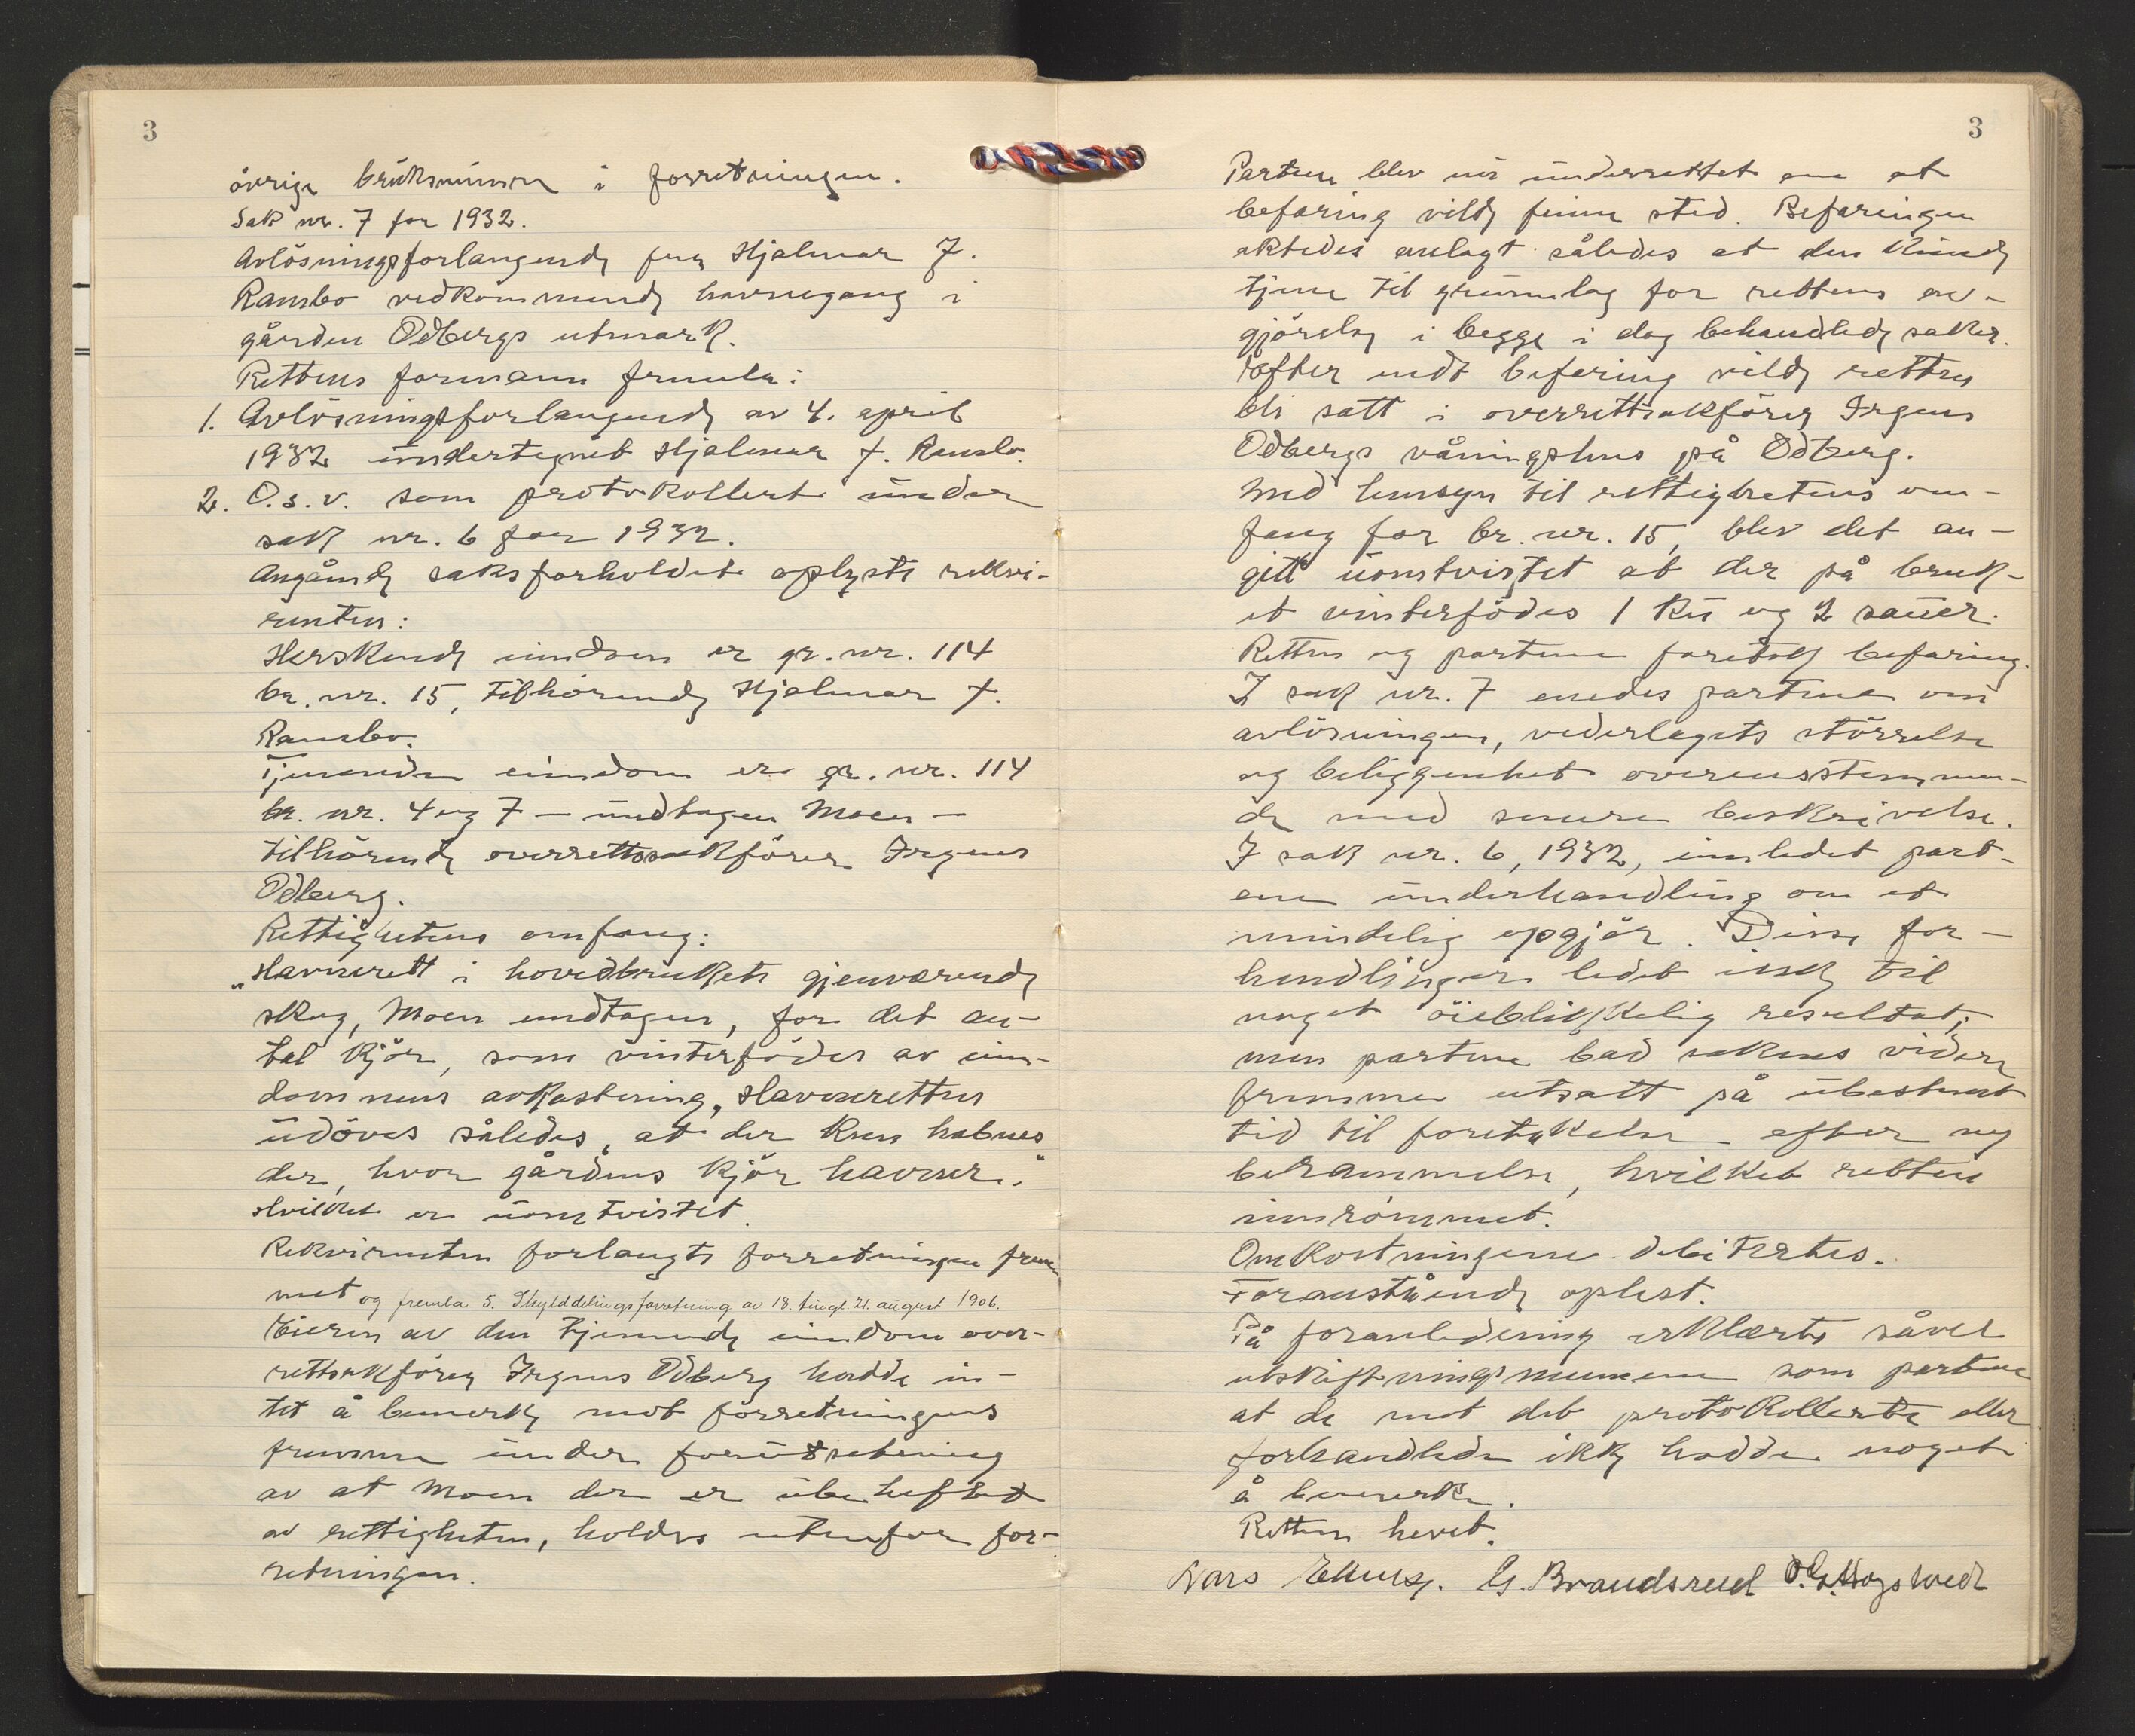 3
övrige bruksnumre i forretningen.
Sak nr. 7 for 1932.
Avlösningsforlangende fra Hjalmar J.
Ramsbo vedkommende havnegang i
gården Odbergs utmark.
Rettens formann fremla:
1. Avlösningsforlangende av 4. april
1932 undertegnet Hjalmar J. Ramsbo.
2. O.s.v. som protokollert under
sak nr. 6 for 1932.
Angående saksforholdet oplyste rekvi-
renten:
Herskende eiendom er gr. nr. 114
br. nr. 15, tilhörende Hjalmar J.
Ramsbo.
Tjenende eiendom er gr. nr. 114
br. nr. 4 og 7 — undtagen Moen —
tilhörende overrettssakförer Irgens
Odberg.
Rettighetens omfang:
„Havnerett i hovedbrukets gjenværende
skog, Moen undtagen, for det an-
tal kjör, som vinterfödes av eien-
dommens avkastning, Havneretten
udöves således, at der kun havnes
der, hvor gårdens kjör havner."
Hvilket er uomtvistet.
Rekvirenten forlangte forretningen frem-
met og fremla 5. Skylddelingsforretning av 18. tingl. 21. august 1906.
Eieren av den tjenende eiendom over-
rettssakförer Irgens Odberg hadde in-
tet å bemerke mot forretningens
fremme under forutsetning
av at Moen der er ubeheftet
av rettigheten, holdes utenfor for-
retningen.
3
Partene blev nu underrettet om at
befaring vilde finne sted. Befaringen
aktedes anlagt således at den kunde
tjene til grunnlag for rettens av-
gjörelse i begge i dag behandlede saker.
Efter endt befaring vilde retten
bli satt i overrettssakförer Irgens
Odbergs våningshus på Odberg.
Med hensyn til rettighetens om-
fang for br. nr. 15, blev det an-
gitt uomtvistet at der på bruk-
et vinterfödes 1 ku og 2 sauer.
Retten og partene foretok befaring.
I sak nr. 7 enedes partene om
avlösningen, vederlagets störrelse
og beliggenhet overensstemmen-
de med senere beskrivelse.
I sak nr. 6, 1932, innledet part-
ene underhandling om et
mindelig opgjör. Disse for-
handlinger ledet ikke til
noget öieblikkelig resultat,
men partene bad sakens videre
fremme utsatt på ubestemt
tid til foretakelse efter ny
berammelse, hvilket retten
innrömmet.
Omkostningene debitertes.
Foranstående oplest.
På foranledning erklærte såvel
utskiftningsmennene som partene
at de mot det protokollerte eller
forhandlede ikke hadde noget
å bemerke.
Retten hevet.
G. Brandsrud